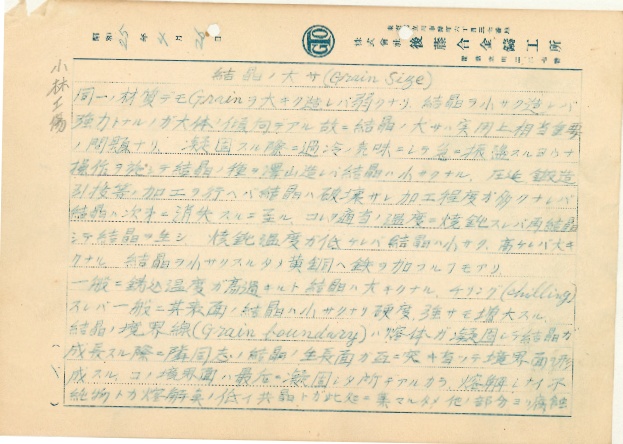 昭和 25 年 4 月 26 日
GTO
株式會社 後藤合金鑄工所
小林工場
結晶ノ大サ(Grain Size)
同一ノ材質デモGrainヲ大キク造レバ弱クナリ、結晶ヲ小サク造レバ
強力トナルノガ大体ノ傾向デアル故ニ結晶ノ大サハ実用上相当重要
ノ問題ナリ、凝固スル際ニ過冷ノ気味ニシテ急ニ振盪スルヨウナ
操作ヲ施シテ結晶ノ種ヲ澤山造レバ結晶ハ小サクナル、圧延鍛造
引抜等ノ加工ヲ行ヘバ結晶ハ破壊サレ加工程度ガ多クナレバ
結晶ハ次第ニ消失スルニ至ル、コレヲ適当ノ温度ニ焼鈍スレバ再結晶
シテ結晶ヲ生シ、焼鈍温度ガ低ケレバ結晶ハ小サク、高ケレバ大キ
クナル、結晶ヲ小サクスルタメ黄銅ヘ鉄ヲ加フルコトモアリ、
一般ニ鋳込温度ガ高過キルト結晶ハ大キクナル、チリング(chilling)
スレバ一般ニ其表面ノ結晶ハ小サクナリ硬度、強サモ増大スル、
結晶ノ境界線(Grain boundary)ハ熔体ガ凝固シテ結晶ガ
成長スル際ニ隣同志ノ結晶ノ生長面ガ互ニ突キ当ツテ境界面ヲ形
成スル、コノ境界面ハ最后ニ凝固シタ所デアルカラ、熔解シナイ不
純物トカ熔解点ノ低イ共晶トカ此処ニ集マルタメ他ノ部分ヨリ腐蝕